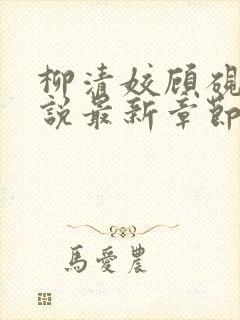 柳清姣顾砚
說最新章節
馬愛農